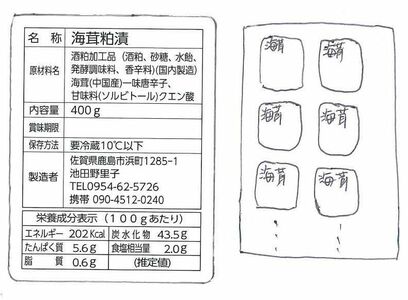 名 称 海茸粕漬
原材料名 酒粕加工品(酒粕、砂糖、水飴、
発酵調味料、香辛料)(国内製造)
海茸(中国産)一味唐辛子、
甘味料(ソルビトール)クエン酸
内容量 400g
賞味期限
保存方法 要冷蔵10℃以下
製造者 佐賀県鹿島市浜町1285-1
池田野里子
TEL0954-62-5726
携帯 090-4512-0240
栄養成分表示(100gあたり)
エネルギー 202Kcal 炭水化物 43.5g
たんぱく質 5.6g 食塩相当量 2.0g
脂 質 0.6g (推定値)
海茸 海茸
海茸 海茸
海茸 海茸